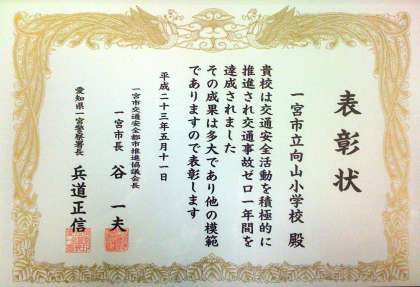 表彰状
一宮市立向山小学校 殿
貴校は交通安全活動を積極的に
推進され交通事故ゼロ一年間を
達成されました
その成果は多大であり他の模範
でありますので表彰します
平成二十三年五月十一日
一宮市交通安全都市推進協議会長
一宮市長 谷 一夫
愛知県一宮警察署長 兵道正信